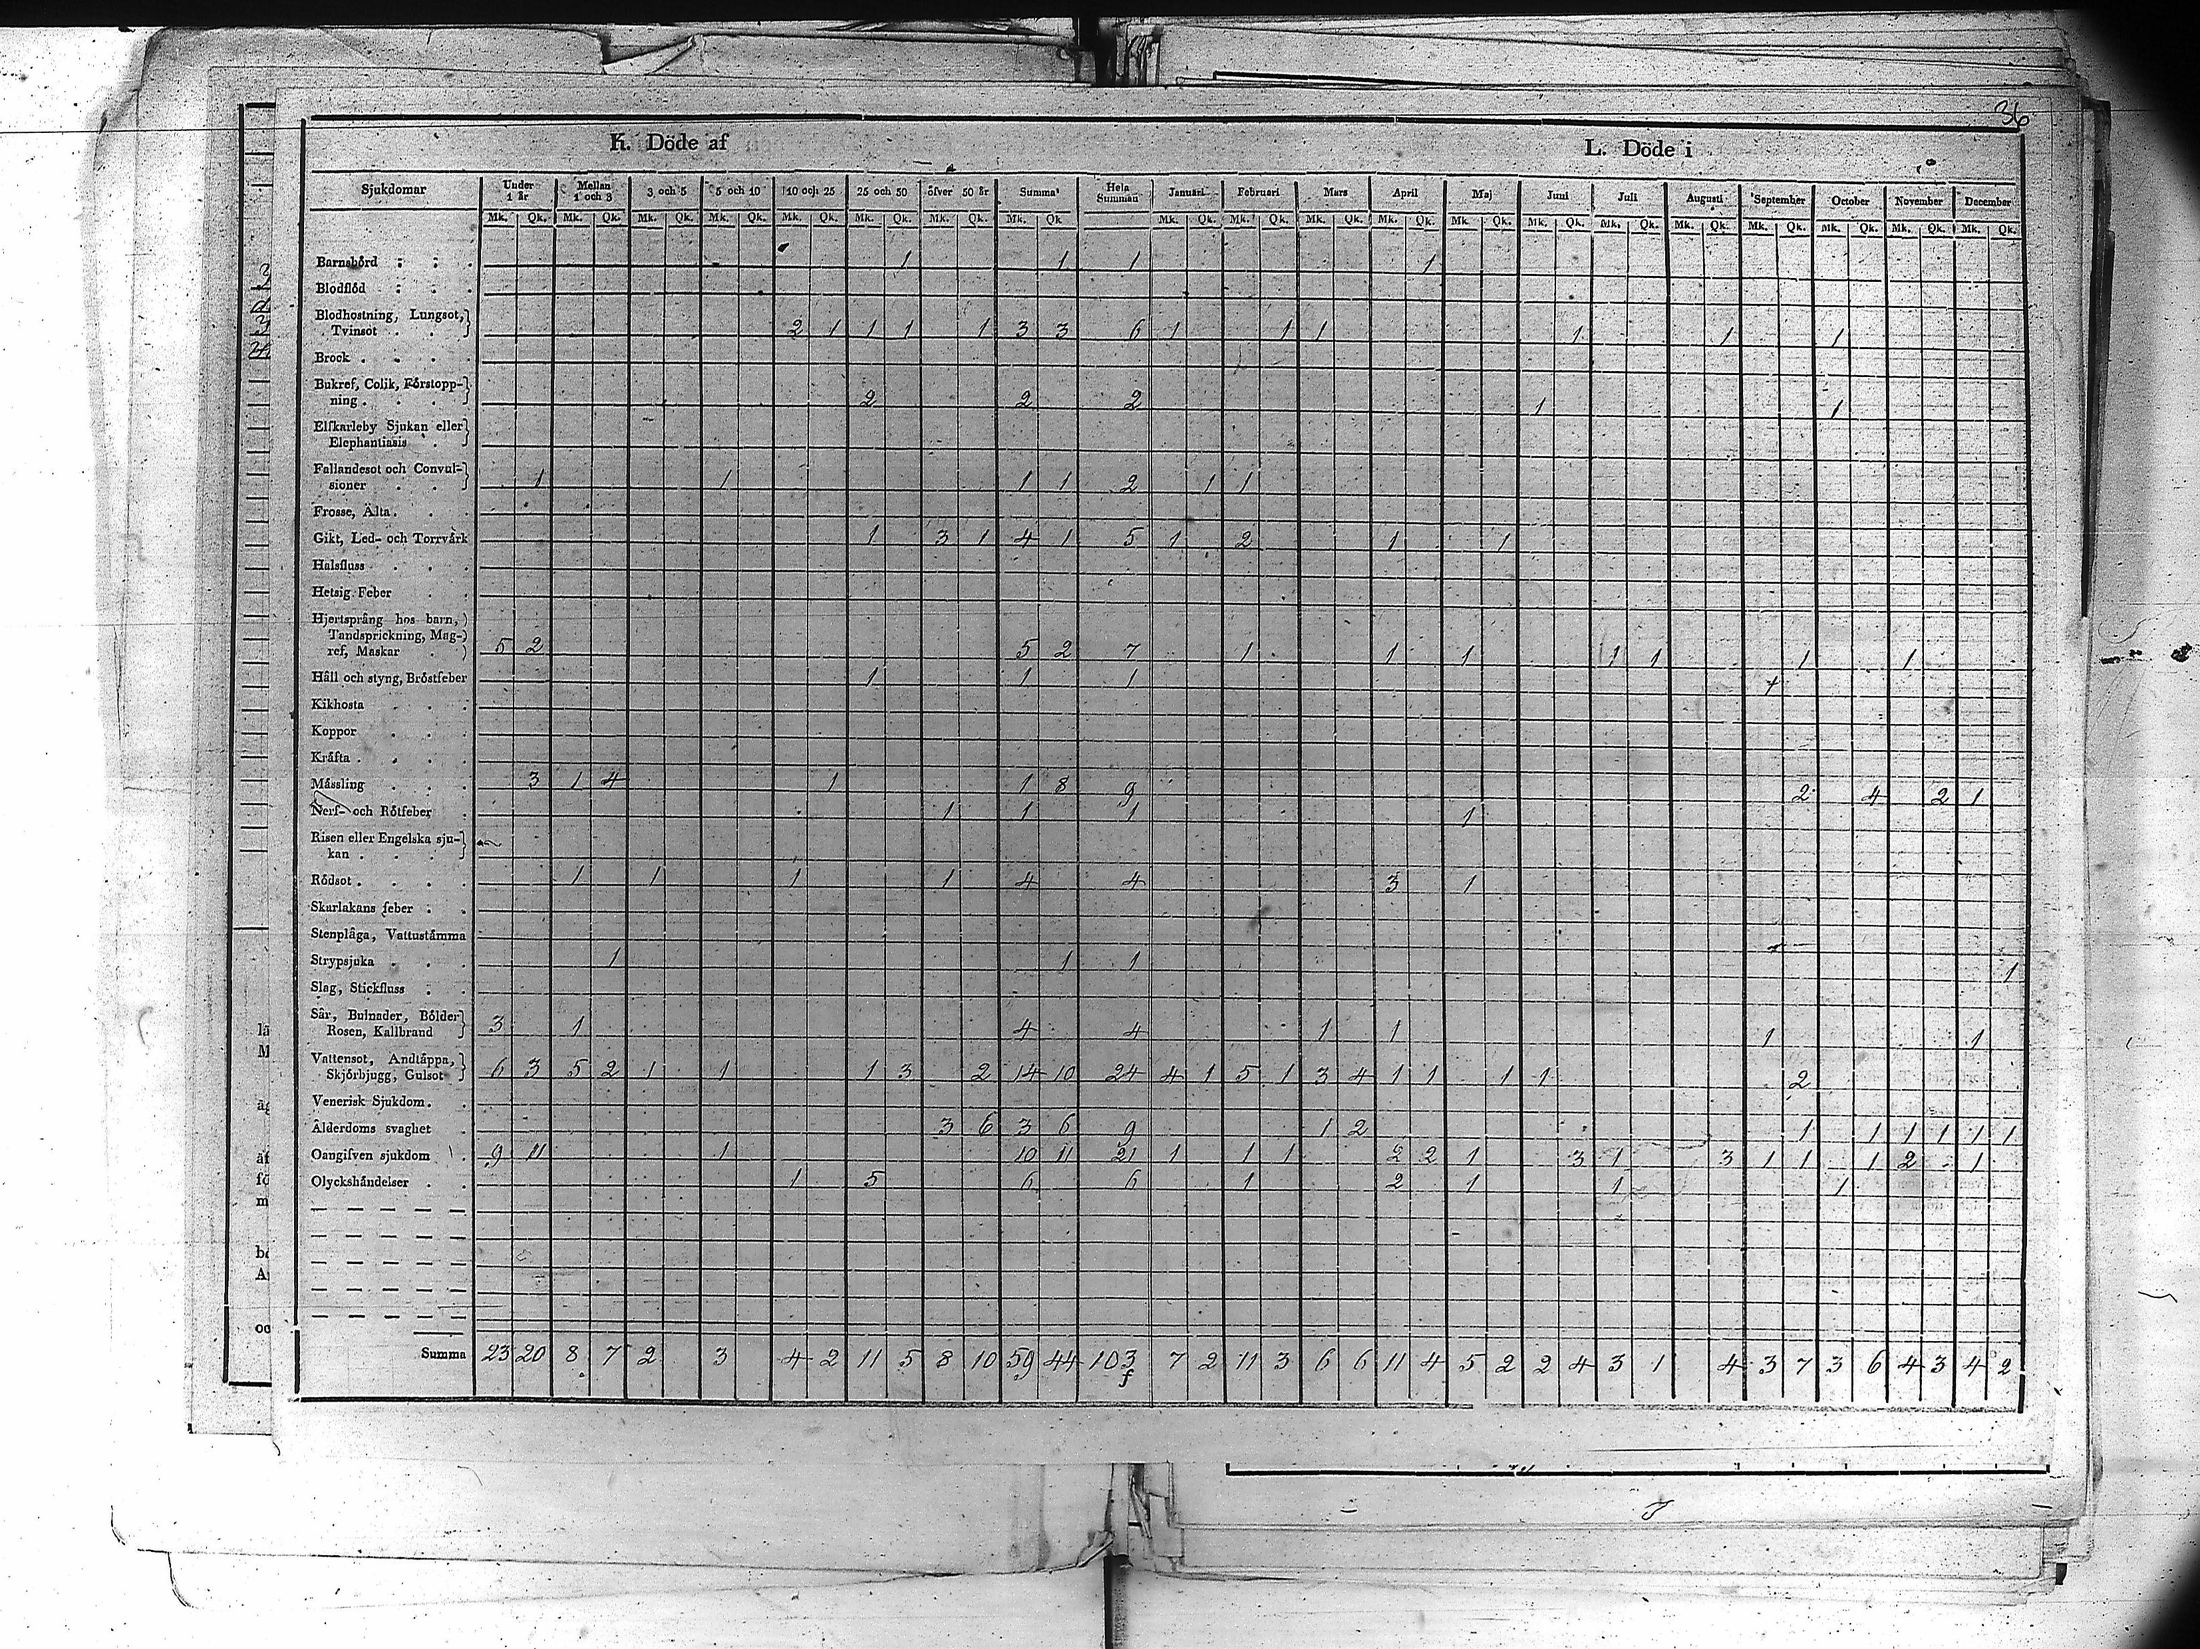 36
K. Döde af
L. Döde i
Sjukdomar Under 1 år Mellan 1 och 3 3 och 5 5 och 10 10 och 25 25 och 50 öfver 50 år Summa Hela Summan Januari Februari Mars April Maj Juni Juli Augusti September October November December
Mk. Qk. Mk. Qk. Mk. Qk. Mk. Qk. Mk. Qk. Mk. Qk. Mk. Qk. Mk. Qk. Mk. Qk. Mk. Qk. Mk. Qk. Mk. Qk. Mk. Qk. Mk. Qk. Mk. Qk. Mk. Qk. Mk. Qk. Mk. Qk. Mk. Qk. Mk. Qk.
Barnsbörd 1 1 1 1
Blodflöd
Blodhostning, Lungsot,
Tvinsot 2 1 1 1 1 3 3 6 1 1 1 1 1 1
Brock
Bukref, Colik, Förstopp-
ning 2 2 2 1 1
Elfkarleby Sjukan eller
Elephantiasis
Fallandesot och Convul-
sioner 1 1 1 1 2 1 1
Frosse, Älta
Gikt, Led- och Torrvärk 1 3 1 4 1 5 1 2 1 1
Halsfluss
Hetsig Feber
Hjertsprång hos barn,
Tandsprickning, Mag-
ref, Maskar 5 2 5 2 7 1 1 1 1 1 1 1
Håll och styng, Bröstfeber 1 1 1
Kikhosta
Koppor
Kräfta
Mässling 3 1 4 1 1 8 9 2 4 2 1
Nerf- och Rötfeber 1 1 1 1
Risen eller Engelska sju-
kan
Rödsot 1 1 1 1 4 4 3 1
Skarlakans feber
Stenplåga, Vattustämma
Strypsjuka 1 1 1 1
Slag, Stickfluss
Sår, Bulnader, Bölder
Rosen, Kallbrand 3 1 4 4 1 1 1 1
Vattensot, Andtäppa,
Skjörbjugg, Gulsot 6 3 5 2 1 1 1 3 2 14 10 24 4 1 5 1 3 4 1 1 1 1 2
Venerisk Sjukdom
Ålderdoms svaghet 3 6 3 6 9 1 2 1 1 1 1 1 1
Oangifven sjukdom 9 11 1 10 11 21 1 1 1 2 2 1 3 1 3 1 1 1 2 1
Olyckshändelser 1 5 6 6 1 2 1 1 1
Summa 23 20 8 7 2 3 4 2 11 5 8 10 59 44 103 7 2 11 3 6 6 11 4 5 2 2 4 3 1 4 3 7 3 6 4 3 4 2